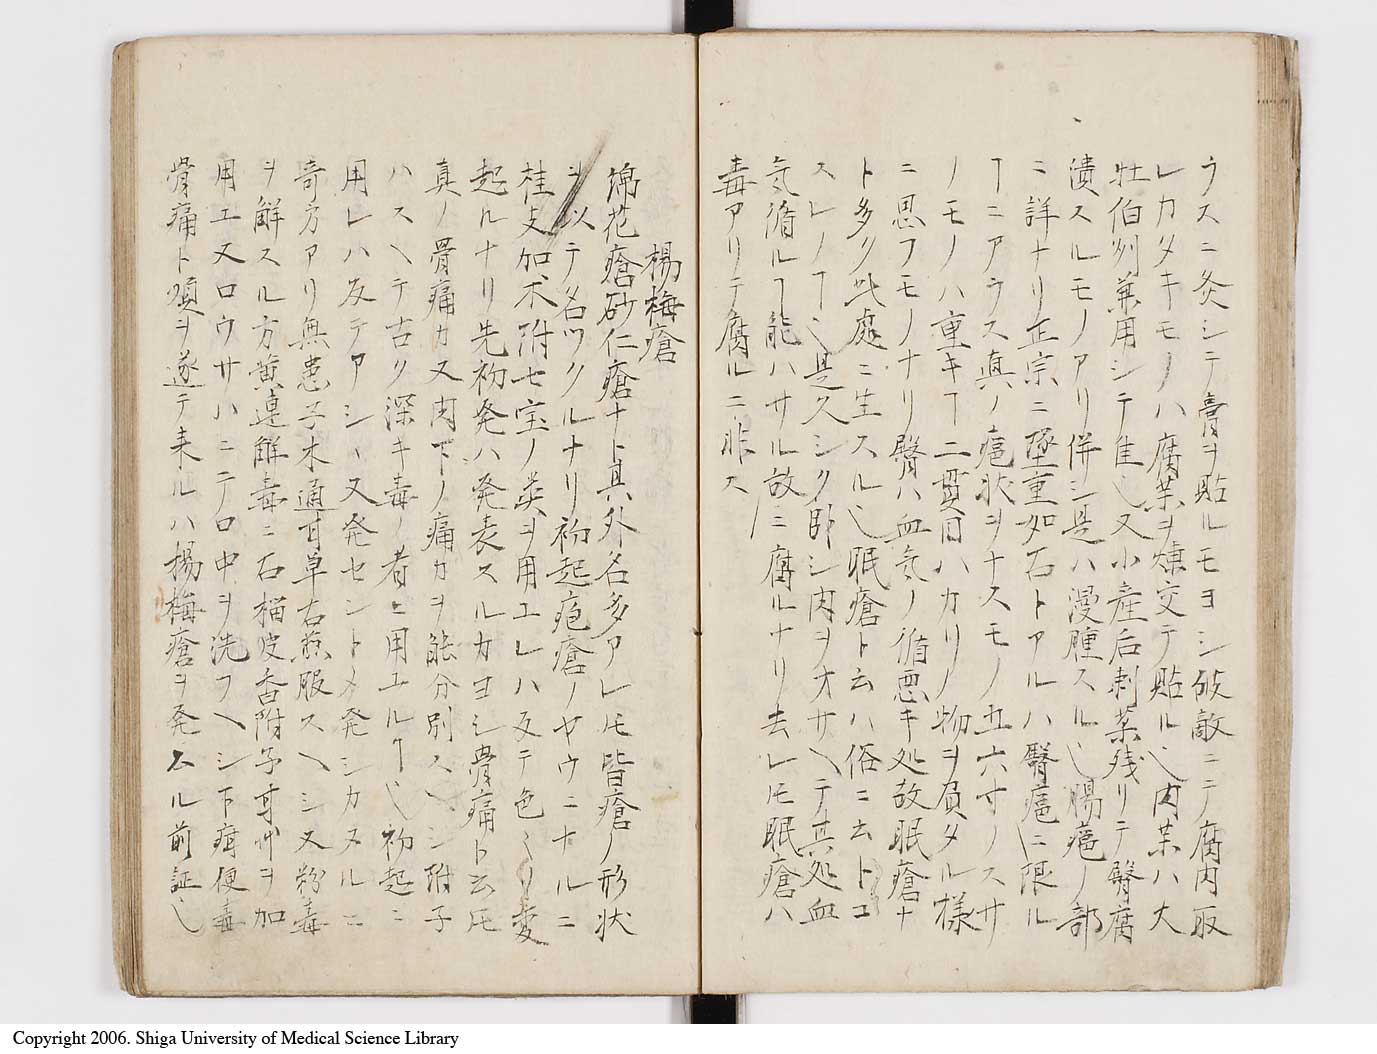 ウスニ灸シテ膏ヲ貼ルモヨシ破敵ニテ腐肉取
レカタキモノハ腐薬ヲ煉交テ貼ル也内薬ハ大
牡伯州兼用シテ佳也又小産后剌薬残リテ臀腐
潰スルモノアリ併シ是ハ漫腫スル也腸癰ノ部
ニ詳ナリ正宗ニ墜重如石トアルハ臀癰ニ限ル
ヿニアラス真ノ癰状ヲナスモノ五六寸ノスサ
ノモノハ重キヿ二貫目ハカリノ物ヲ負タル様
ニ思フモノナリ臀ハ血気ノ循悪キ処故眠瘡ナ
ト多ク此處ニ生スル也眠瘡ト云ハ俗ニ云トコ
スレノヿ也是久シク臥シ肉ヲオサヘテ其処血
気循ルヿ能ハサル故ニ腐ルナリ去レ𪜈眠瘡ハ
毒アリテ腐ルニ非ス
楊梅瘡
綿花瘡砂仁瘡ナト其外名多アレ𪜈皆瘡ノ形状
ヲ以テ名ツクルナリ初起疱瘡ノヤウニナルニ
桂支加朮附七宝ノ類ヲ用エレハ反テ色〻リ変
起ルナリ先初発ハ発表スルカヨシ骨痛ト云𪜈
真ノ骨痛カ又肉下ノ痛カヲ能分別スヘシ附子
ハスヘテ古ク深キ毒ノ者ヒ用ユルヿ也初起ニ
用レハ反テアシヽ又発セントメ発シカヌルニ
奇方アリ無患子木通甘草右煎服スヘシ又粉毒
ヲ解スル方黄連解毒ニ石榴皮香附子甘艸ヲ加
用エ又ロウサハニテ口中ヲ洗フヘシ下疳便毒
骨痛ト順ヲ遂テ来ルハ楊梅瘡ヲ発スル前証也
Copyright 2006. Shiga University of Medical Science Library